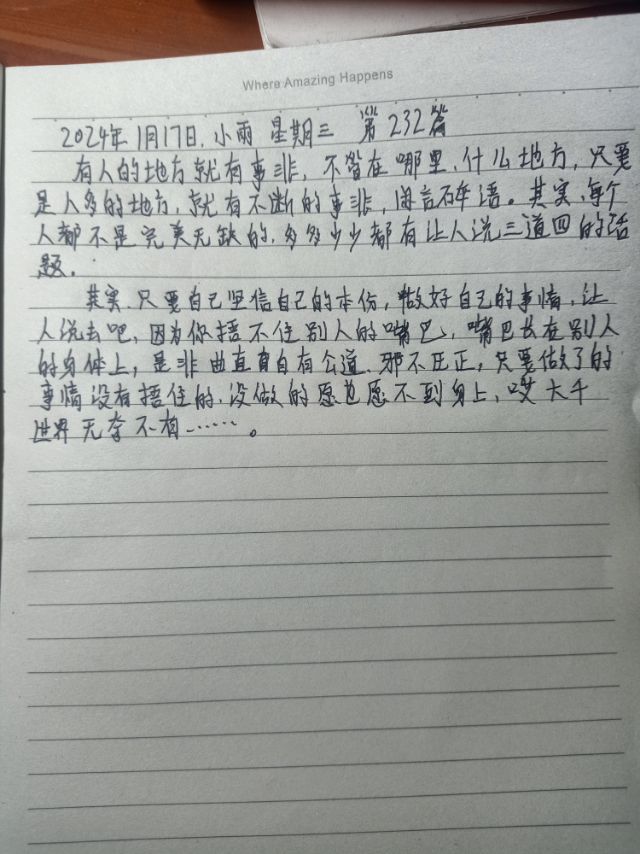 Where Amazing Happens
2024年1月17日.小雨 星期三 第232篇
有人的地方就有事非,不管在哪里、什么地方,只要
是人多的地方,就有不断的事非,闲言碎语。其实,每个
人都不是完美无缺的,多多少少都有让人说三道四的话
题。
其实.只要自己坚信自己的本份,做好自己的事情,让
人说去吧,因为你捂不住别人的嘴巴,嘴巴长在别人
的身体上,是非曲直自有公道.邪不压正,只要做了的
事情没有捂住的.没做的愿也愿不到身上,哎大千
世界无奇不有……。